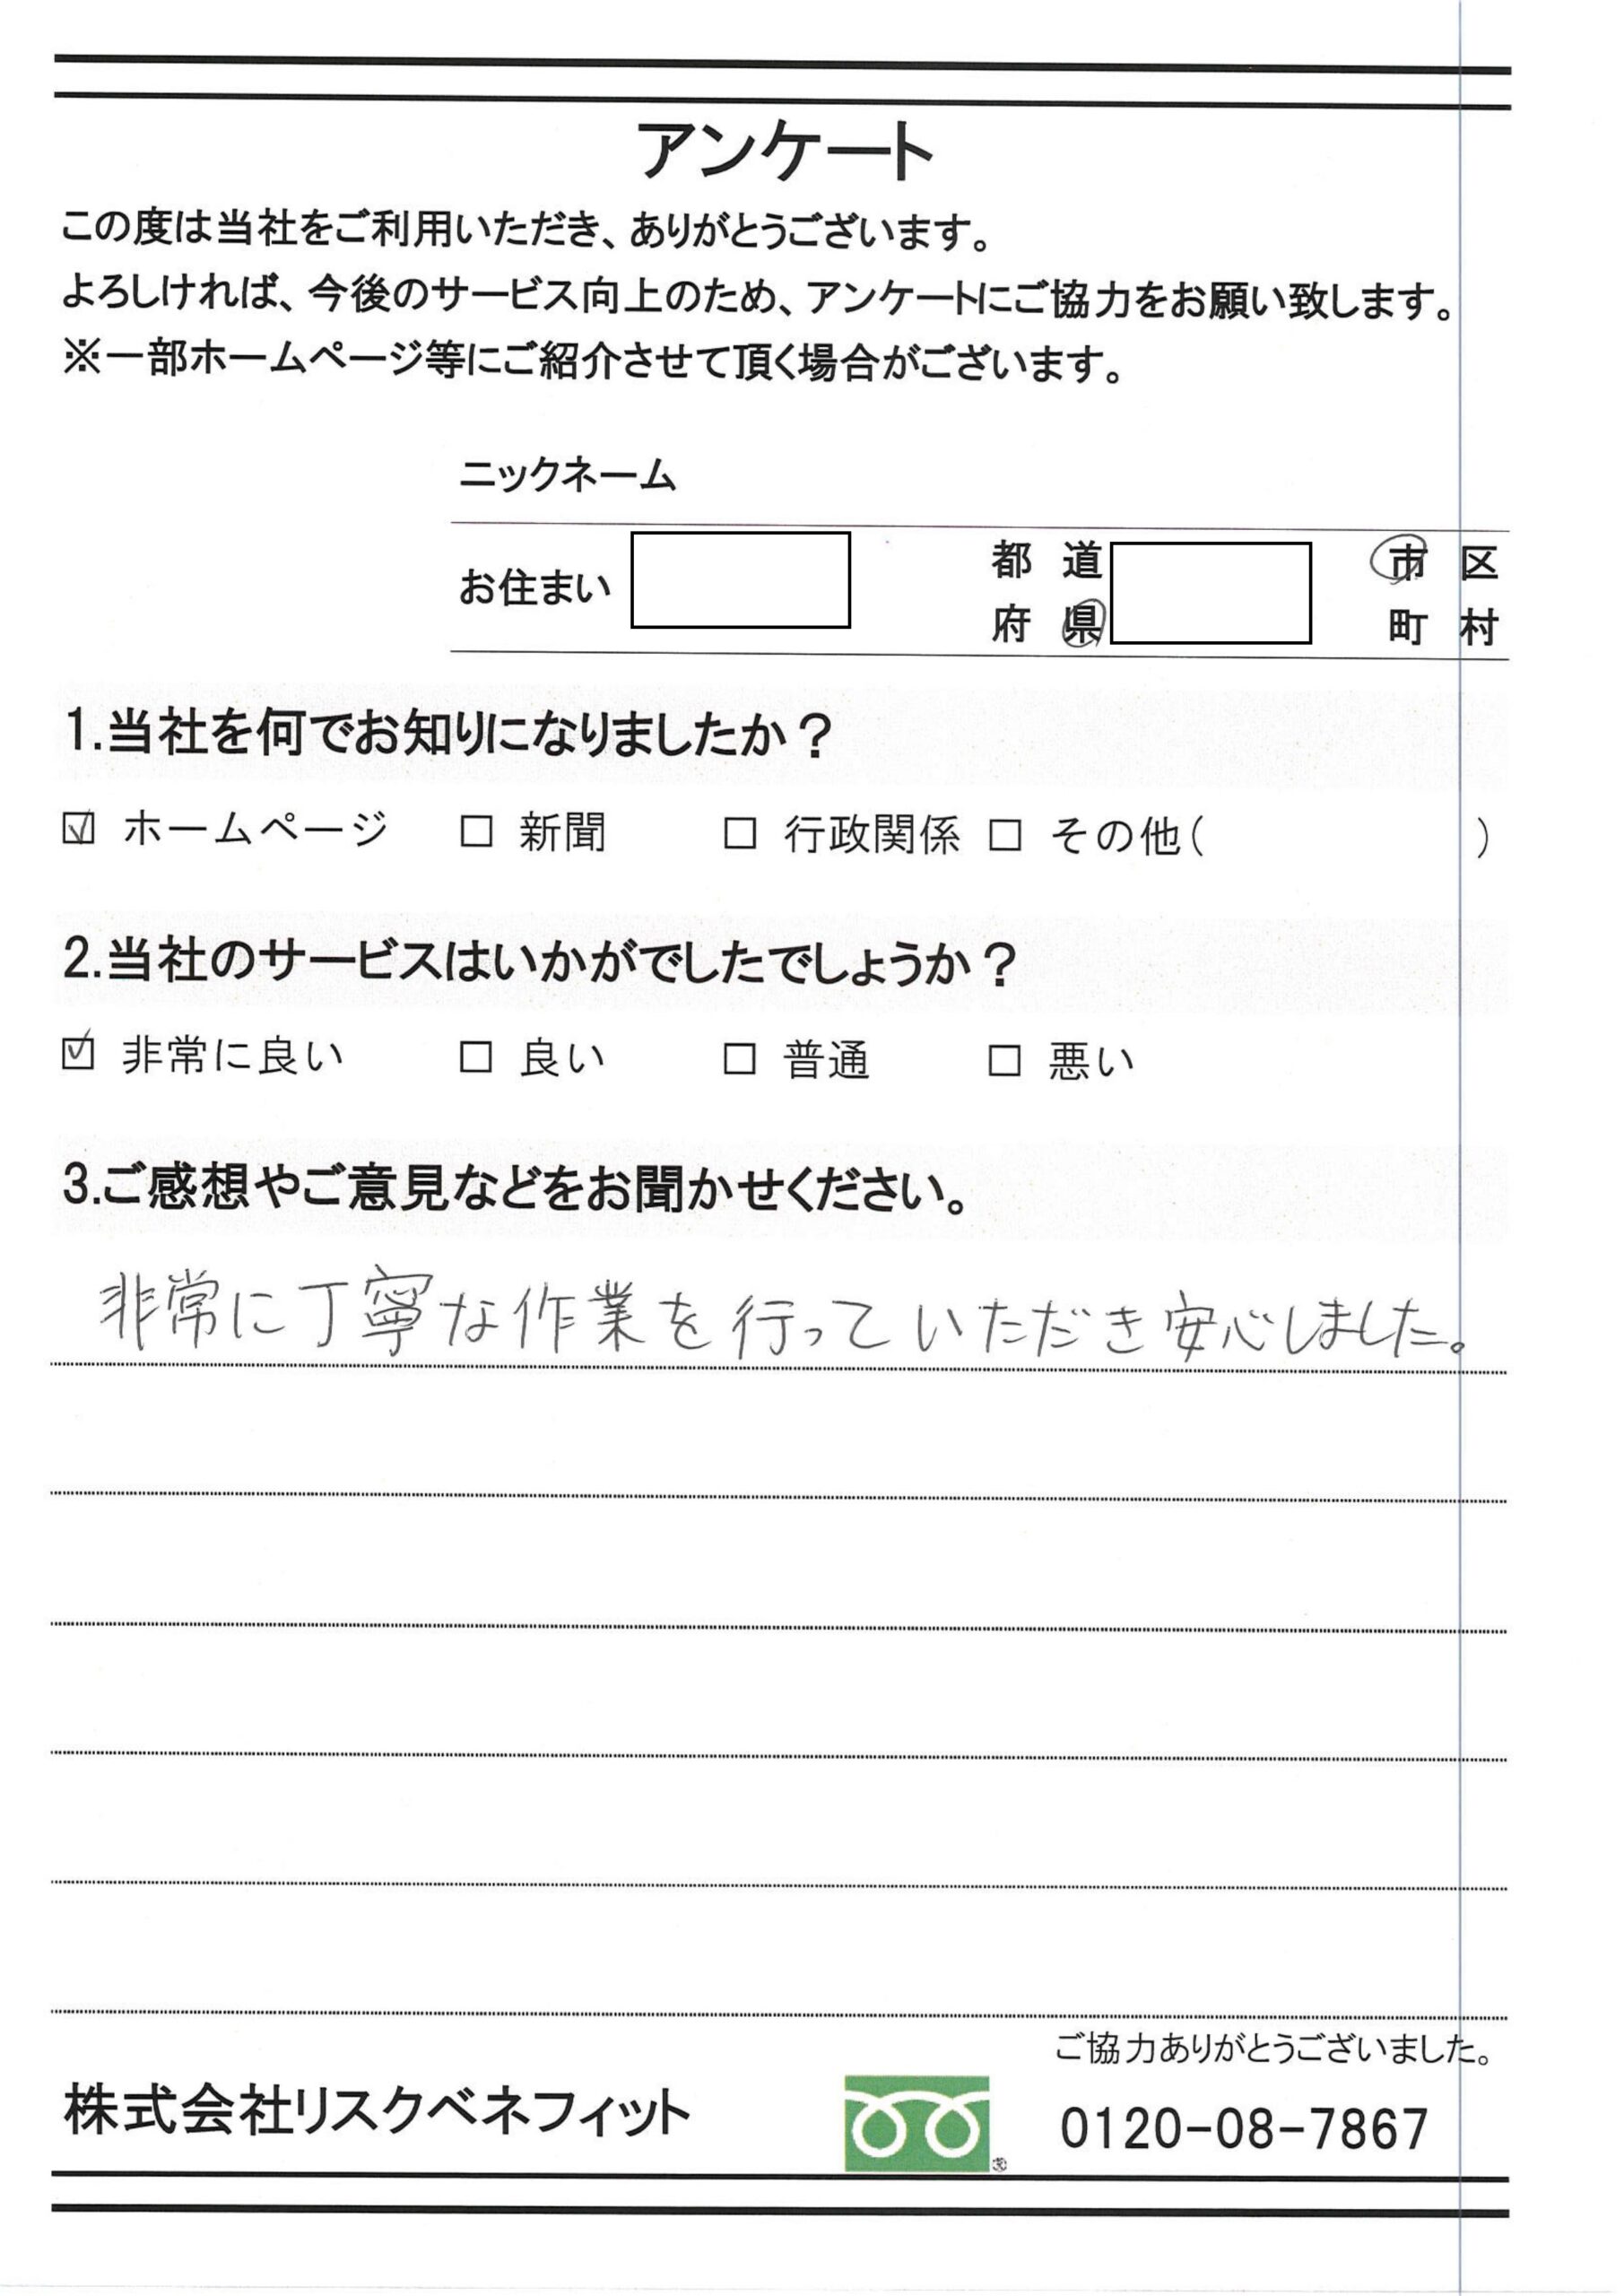 アンケート
この度は当社をご利用いただき、ありがとうございます。
よろしければ、今後のサービス向上のため、アンケートにご協力をお願い致します。
※一部ホームページ等にご紹介させて頂く場合がございます。
ニックネーム
お住まい 都 道 府 県 市 区 町 村
1.当社を何でお知りになりましたか？
☑ ホームページ □ 新聞 □ 行政関係 □ その他( )
2.当社のサービスはいかがでしたでしょうか？
☑ 非常に良い □ 良い □ 普通 □ 悪い
3.ご感想やご意見などをお聞かせください。
非常に丁寧な作業を行っていただき安心しました。
ご協力ありがとうございました。
株式会社リスクベネフィット 0120-08-7867